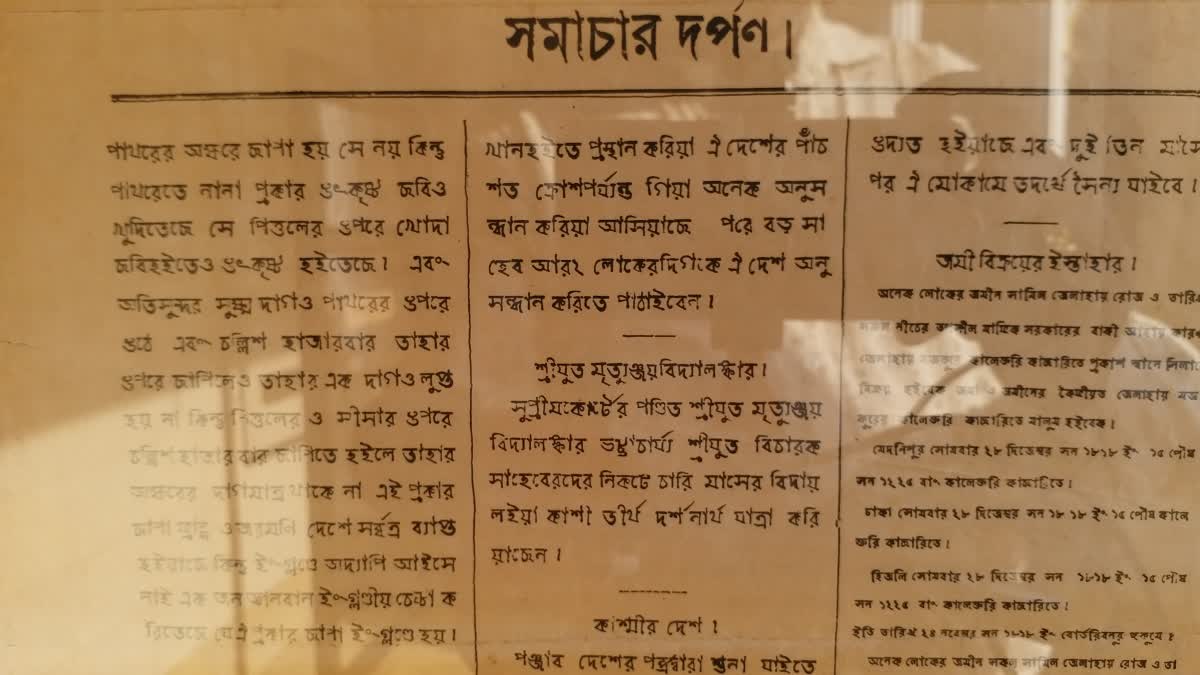 সমাচার দর্পণ।
পাথরের অক্ষরে ছাপা হয় সে নয় কিন্তু
পাথরেতে নানা প্রকার উৎকৃষ্ট ছবিও
খুদিতেছে সে পিত্তলের উপরে খোদা
ছবিহইতেও উৎকৃষ্ট হইতেছে। এবং
অতিসুন্দর সুক্ষ্ম দাগও পাথরের উপরে
উঠে এবং চল্লিশ হাজারবার তাহার
উপরে ছাপিলেও তাহার এক দাগও লুপ্ত
হয় না কিন্তু পিত্তলের ও সীসার উপরে
চল্লিশ হাজার বার ছাপিতে হইলে তাহার
অক্ষরের দাগমাত্র থাকে না এই প্রকার
ছাপা ও জরমণি দেশে সর্ব্বত্র ব্যাপ্ত
হইয়াছে কিন্তু ইংগ্লণ্ডে অদ্যাপি আইসে
নাই এক জন জ্ঞানবান ইংগ্লণ্ডীয় চেষ্টা ক
রিতেছে যে ঐ প্রকার ছাপা ইংগ্লণ্ডে হয়।
খানহইতে প্রস্থান করিয়া ঐ দেশের পাঁচ
শত ক্রোশপর্য্যন্ত গিয়া অনেক অনুস
ন্ধান করিয়া আসিয়াছে পরে বড় সা
হেব আর২ লোকেরদিগকে ঐ দেশ অনু
সন্ধান করিতে পাঠাইবেন।
শ্রীযুত মৃত্যুঞ্জয়বিদ্যালঙ্কার।
সুপ্রীমকোর্টের পণ্ডিত শ্রীযুত মৃত্যুঞ্জয়
বিদ্যালঙ্কার ভট্টাচার্য্য শ্রীযুত বিচারক
সাহেবেরদের নিকটে চারি মাসের বিদায়
লইয়া কাশী তীর্থ দর্শনার্থ যাত্রা করি
য়াছেন।
কাশ্মীর দেশ।
পঞ্জাব দেশের পত্রদ্বারা শুনা যাইতে
উদ্যত হইয়াছে এবং দুই তিন মাসে
পর ঐ মোকামে তদর্থে সৈন্য যাইবে।
জমী বিক্রয়ের ইস্তাহার।
অনেক লোকের জমীন সামিল জেলাহায় রোজ ও তারিখ
নীচের মাফিক সরকারের বাকী আদায় কারণ
জেলাহায় কালেকটরি কাছারিতে
বিক্রয় হইবেক জমা ও জমীনের কৈফীয়ত জেলাহায় মজ
কুরের কালেকটরি কাছারিতে মালুম হইবেক।
মেদনিপুর সোমবার ২৮ দিসেম্বর সন ১৮১৮ ইং ১৫ পৌষ
সন ১২২৫ বাং কালেকটরি কাছারিতে।
ঢাকা সোমবার ২৮ দিসেম্বর সন ১৮১৮ ইং ১৫ পৌষ কালে
কটরি কাছারিতে।
হিজলি সোমবার ২৮ দিসেম্বর সন ১৮১৮ ইং ১৫ পৌষ
সন ১২২৫ বাং কালেকটরি কাছারিতে।
ইতি তারিখ ২৪ নবেম্বর সন ১৮১৮ ইং হুকুমে।
অনেক লোকের জমীন সামিল জেলাহায় রোজ ও তা